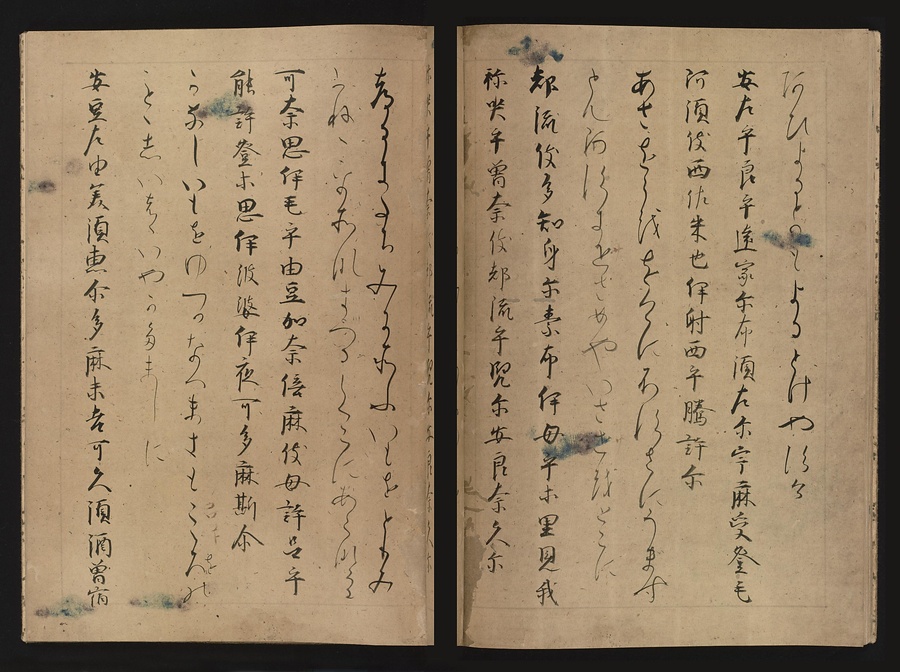 あひよるとかもよるとけやすけ
安左乎良乎遠家尓布須左尓宇麻受登毛
阿須伎西佐米也伊射西乎騰許尓
あさをらををけにふすさにうます
ともあすきせさめやいさせをとこに
都流伎多知身尓素布伊母乎等里見我
祢哭乎曽奈伎都流手兒尓安良奈久尓
つるきたちみにそふいもをとりみ
かねねをそなきつるてこにあらなくに
可奈思伊毛乎由豆加奈倍麻伎母許呂乎
能許登等思伊波婆伊夜可多麻斯尓
かなしいもをゆつかなへまきもころの
ことゝしいはゝいやかたましに
安豆左由美須恵尓多麻末吉可久須酒曽宿